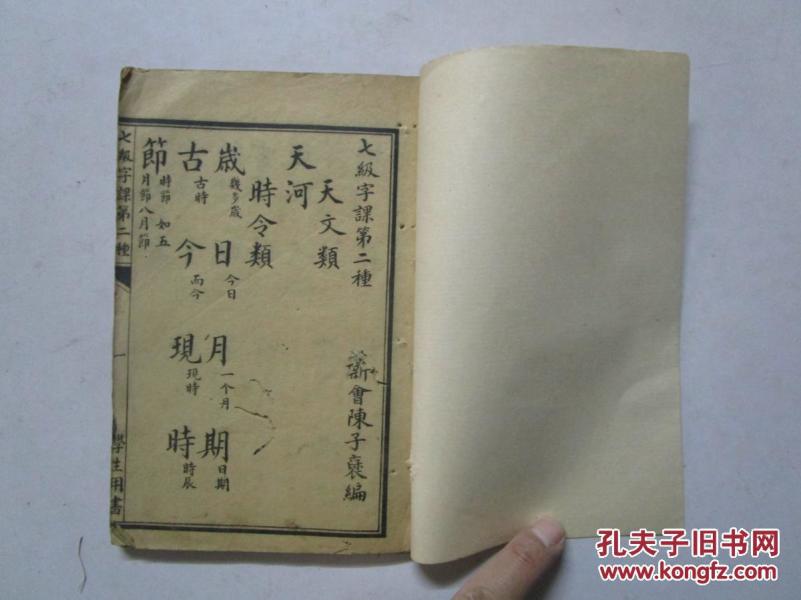 七級字課第二種
新會陳子褒編
天文類
天河
時令類
歲 幾多歲 日 今日 月 一个月 期 日期
古 古時 今 而今 現 現時 時 時辰
節 時節 如五月節八月節
七級字課第二種
一
學生用書
孔夫子旧书网
www.kongfz.com